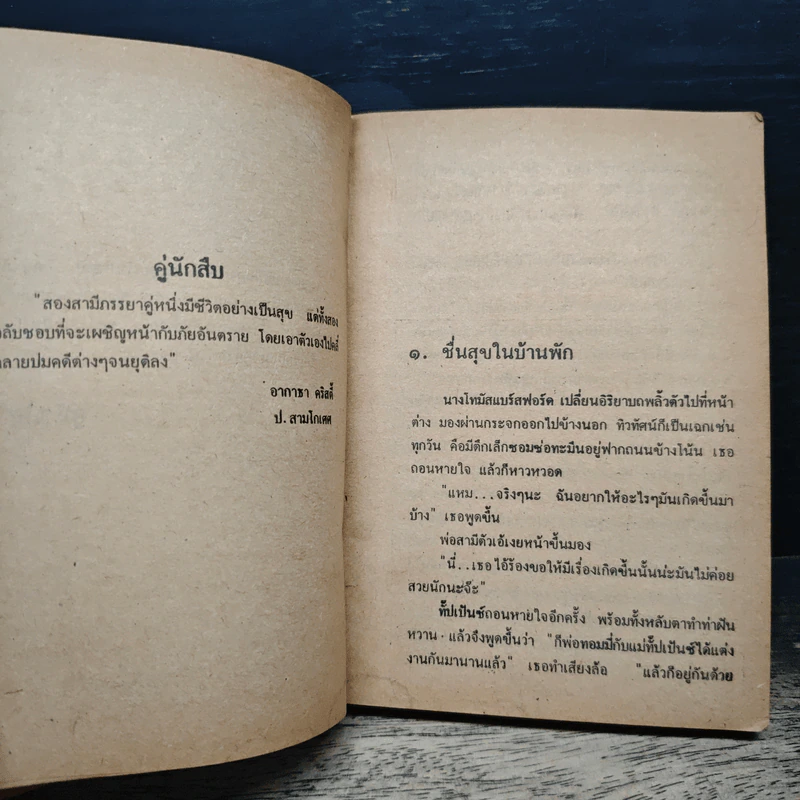 คู่นักสืบ
"สองสามีภรรยาคู่หนึ่งมีชีวิตอย่างเป็นสุข แต่ทั้งสอง
ลับชอบที่จะเผชิญหน้ากับภัยอันตราย โดยเอาตัวเองไปคลี่
ลายปมคดีต่างๆจนยุติลง"
อากาธา คริสตี้
ป. สามโกเศศ
๑. ชื่นสุขในบ้านพัก
นางโทมัสแบร์สฟอร์ด เปลี่ยนอิริยาบถพลิ้วตัวไปที่หน้า
ต่าง มองผ่านกระจกออกไปข้างนอก ทิวทัศน์ก็เป็นเฉกเช่น
ทุกวัน คือมีตึกเล็กซอมซ่อทะมึนอยู่ฟากถนนข้างโน้น เธอ
ถอนหายใจ แล้วก็หาวหวอด
"แหม...จริงๆนะ ฉันอยากให้อะไรๆมันเกิดขึ้นมา
บ้าง" เธอพูดขึ้น
พ่อสามีตัวเอ้เงยหน้าขึ้นมอง
"นี่..เธอไอ้ร้องขอให้มีเรื่องเกิดขึ้นนั้นน่ะมันไม่ค่อย
สวยนักนะจ๊ะ"
ทั๊ปเป้นซ์ถอนหายใจอีกครั้ง พร้อมทั้งหลับตาทำท่าฝัน
หวาน แล้วจึงพูดขึ้นว่า "ก็พ่อทอมมี่กับแม่ทั๊ปเป้นซ์ได้แต่ง
งานกันมานานแล้ว" เธอทำเสียงล้อ "แล้วก็อยู่กันด้วย